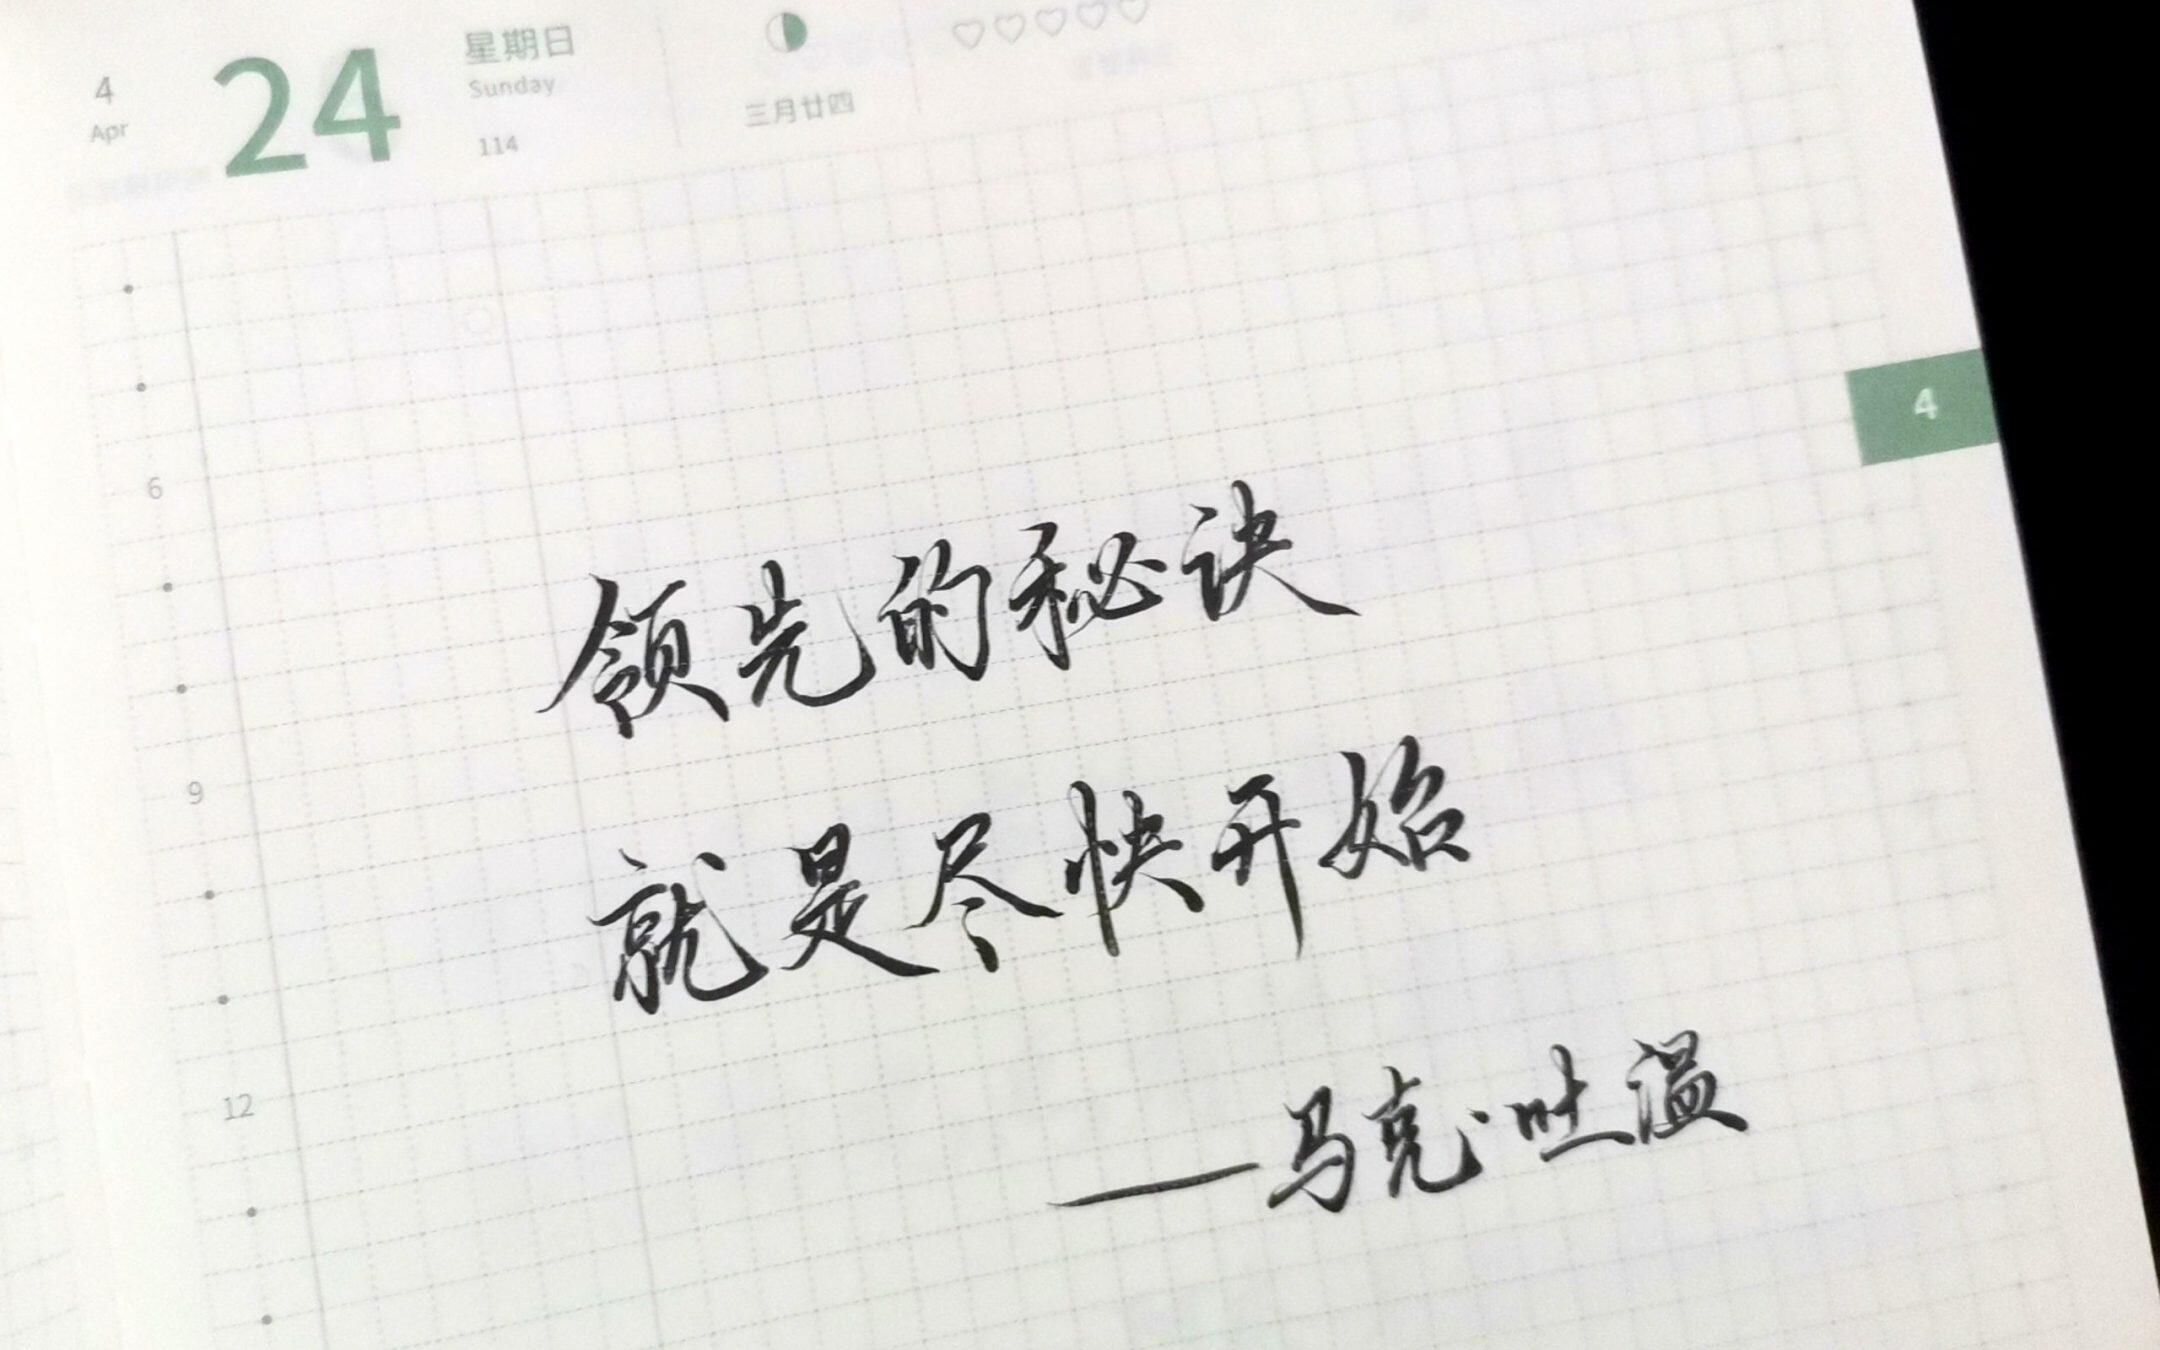 4
Apr
24
星期日
Sunday
114
三月廿四
4
6
9
12
领先的秘诀
就是尽快开始
——马克·吐温